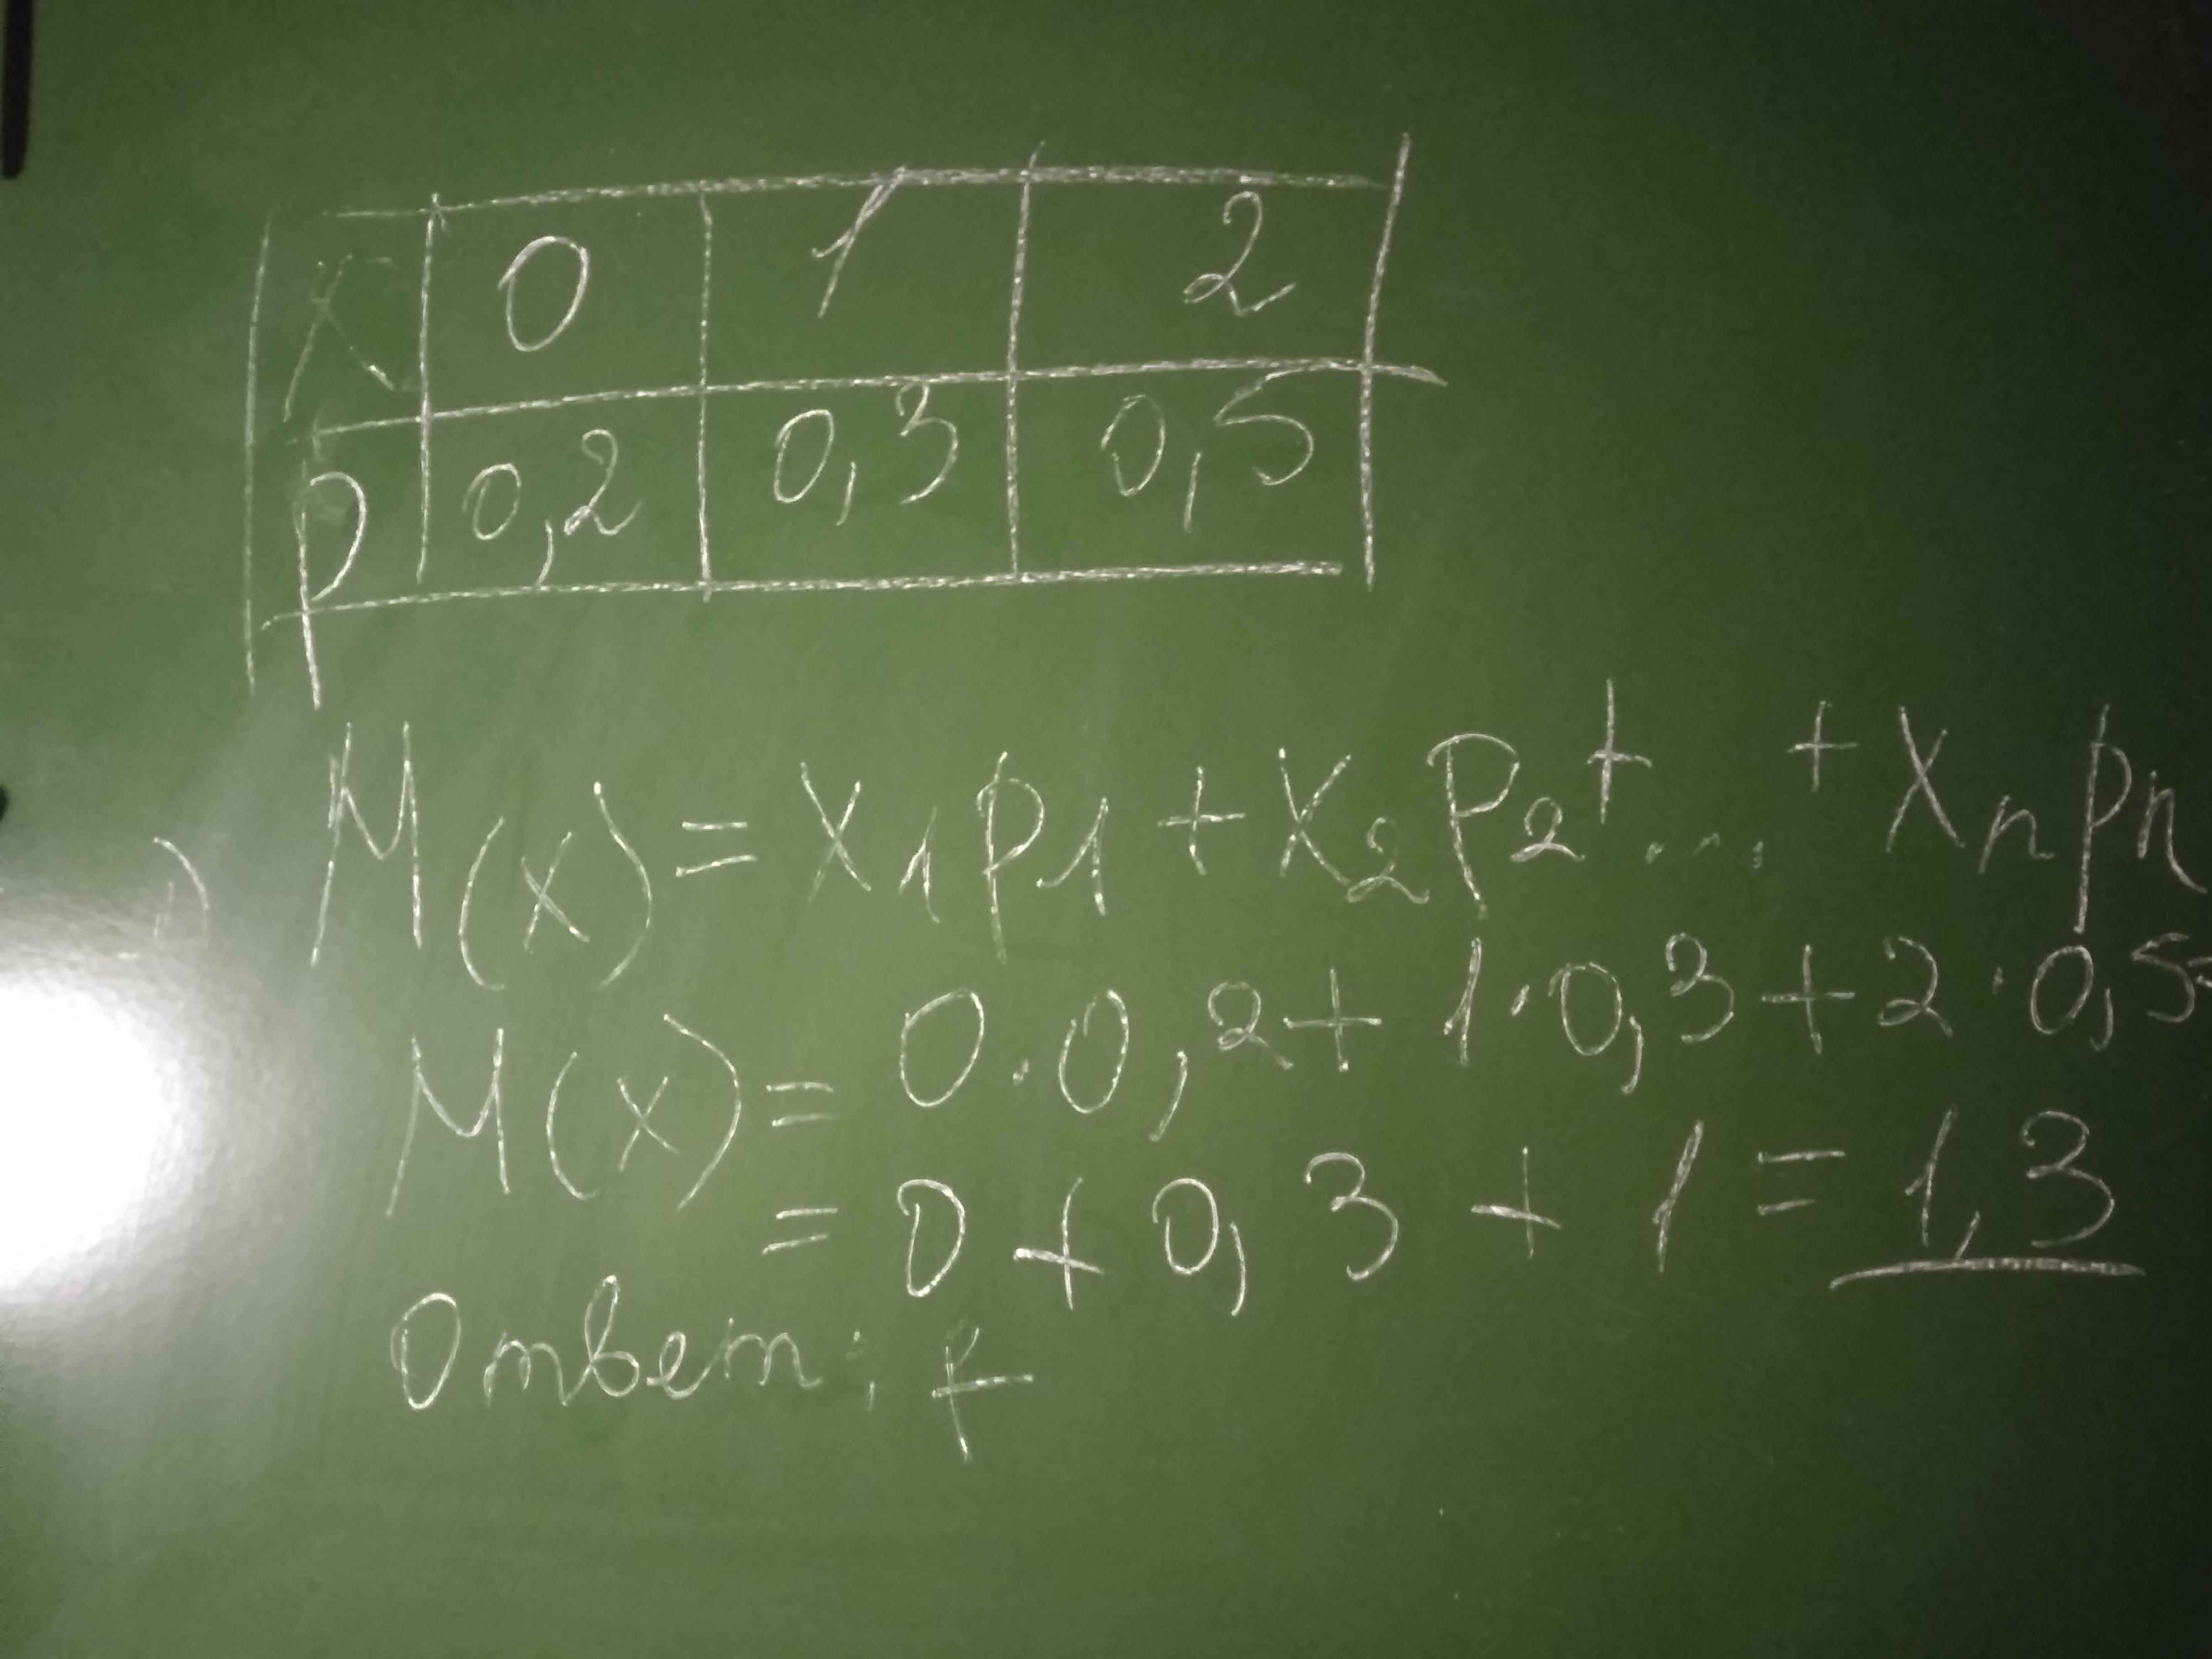 X 0 1 2
p 0,2 0,3 0,5
1) M(x) = x₁p₁ + x₂p₂ + ... + xₙpₙ
M(x) = 0·0,2 + 1·0,3 + 2·0,5 =
= 0 + 0,3 + 1 = 1,3
Ответ: